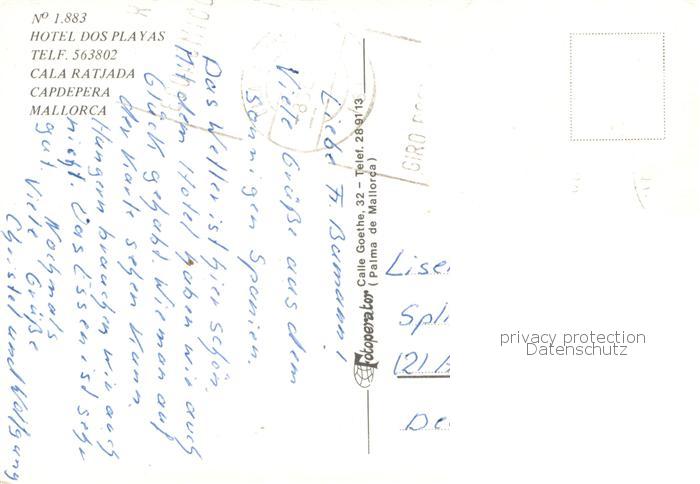 Nº 1.883
HOTEL DOS PLAYAS
TELF. 563802
CALA RATJADA
CAPDEPERA
MALLORCA
Liebe Fr Bumann!
Viele Grüße aus dem
sonnigen Spanien.
Das Wetter ist hier schön.
Mit dem Hotel haben wir auch
Glück gehabt. Wie man auf
der Karte sehen kann.
Hungern brauchen wir auch
nicht. Das Essen ist sehr
gut.
Nochmals
Viele Grüße
Christel und Wolfgang
Fotoperator Calle Goethe, 32 – Telef. 28 91 13
(Palma de Mallorca)
GIRO
privacy protection
Datenschutz